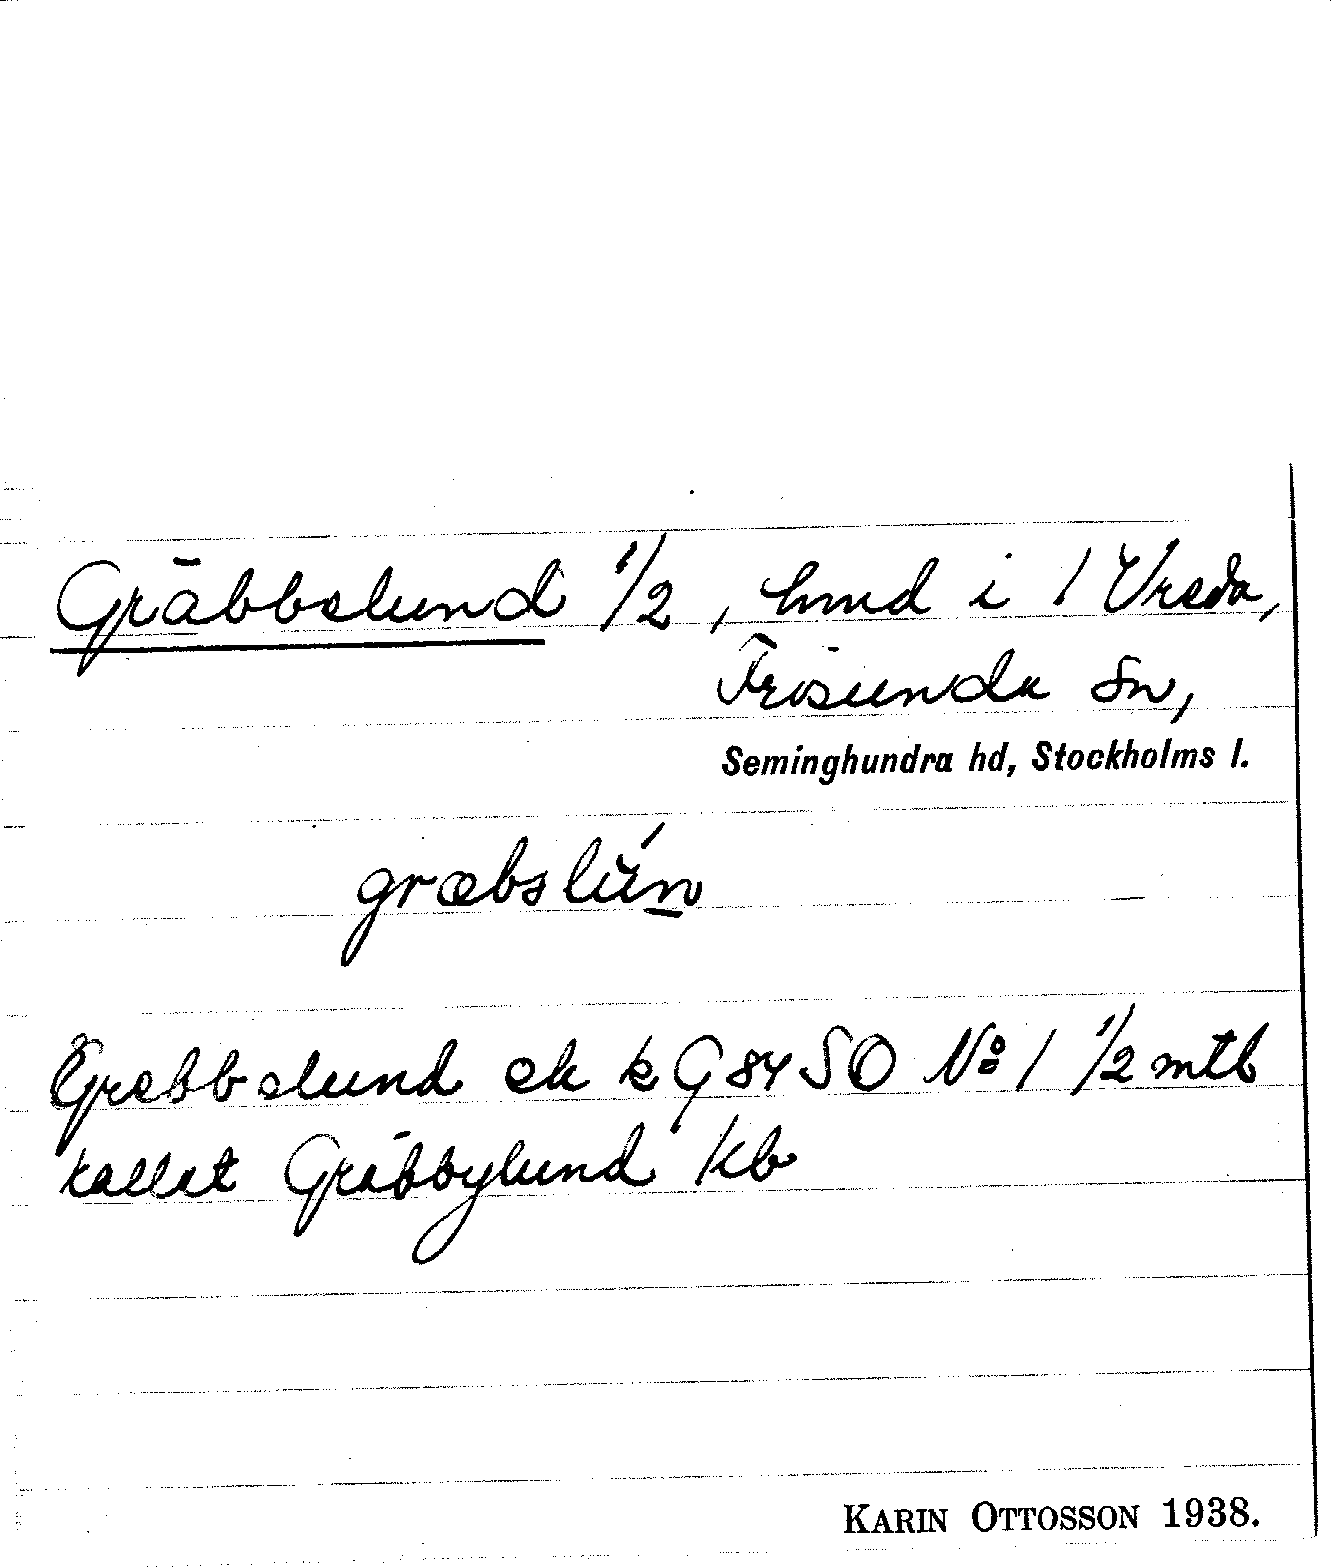 Gräbbslund 1/2, hmd i 1 Vreda,
Frösunda sn,
Seminghundra hd, Stockholms l.
græbslún
Grebbslund ek k G 84 SO No 1 1/2 mtl
kallat Gräbbylund kb
KARIN OTTOSSON 1938.